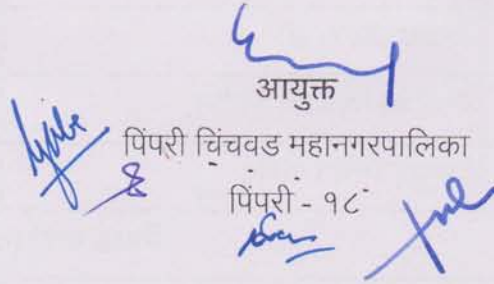 आयुक्त
पिंपरी चिंचवड महानगरपालिका
पिंपरी - १८